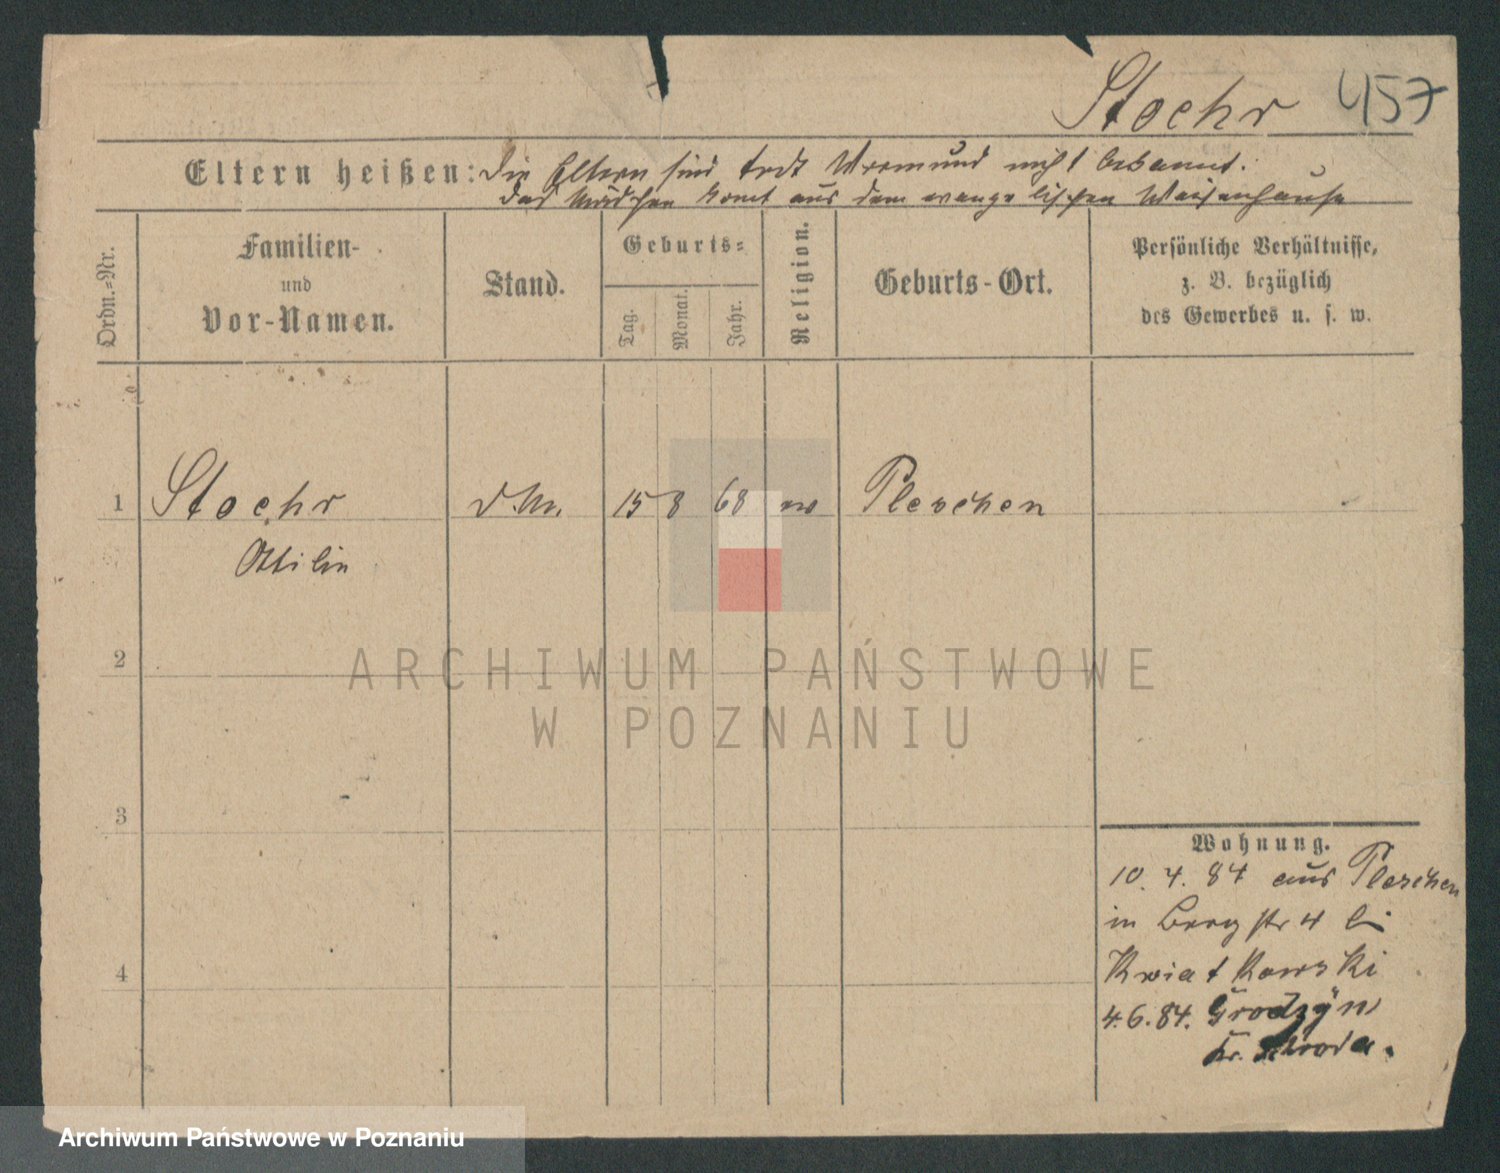 Stoehr 457
Eltern heißen: Die Eltern sind todt Vormund nicht bekannt.
Das Mädchen komt aus dem evangelischen Waisenhause
Ordn.-Nr.
Familien-
und
Vor-Namen.
Stand.
Geburts-
Tag.
Monat.
Jahr.
Religion.
Geburts-Ort.
Persönliche Verhältnisse,
z. B. bezüglich
des Gewerbes u. s. w.
1 Stoehr d.M. 15 8 68 ev Pleschen
Ottilie
2
3
4
Wohnung.
10. 4. 84 aus Pleschen
in Berg str 4 bei
Kwiatkowski
4.6.84. Grodzyn
Kr. Schroda.
ARCHIWUM PAŃSTWOWE
W POZNANIU
Archiwum Państwowe w Poznaniu